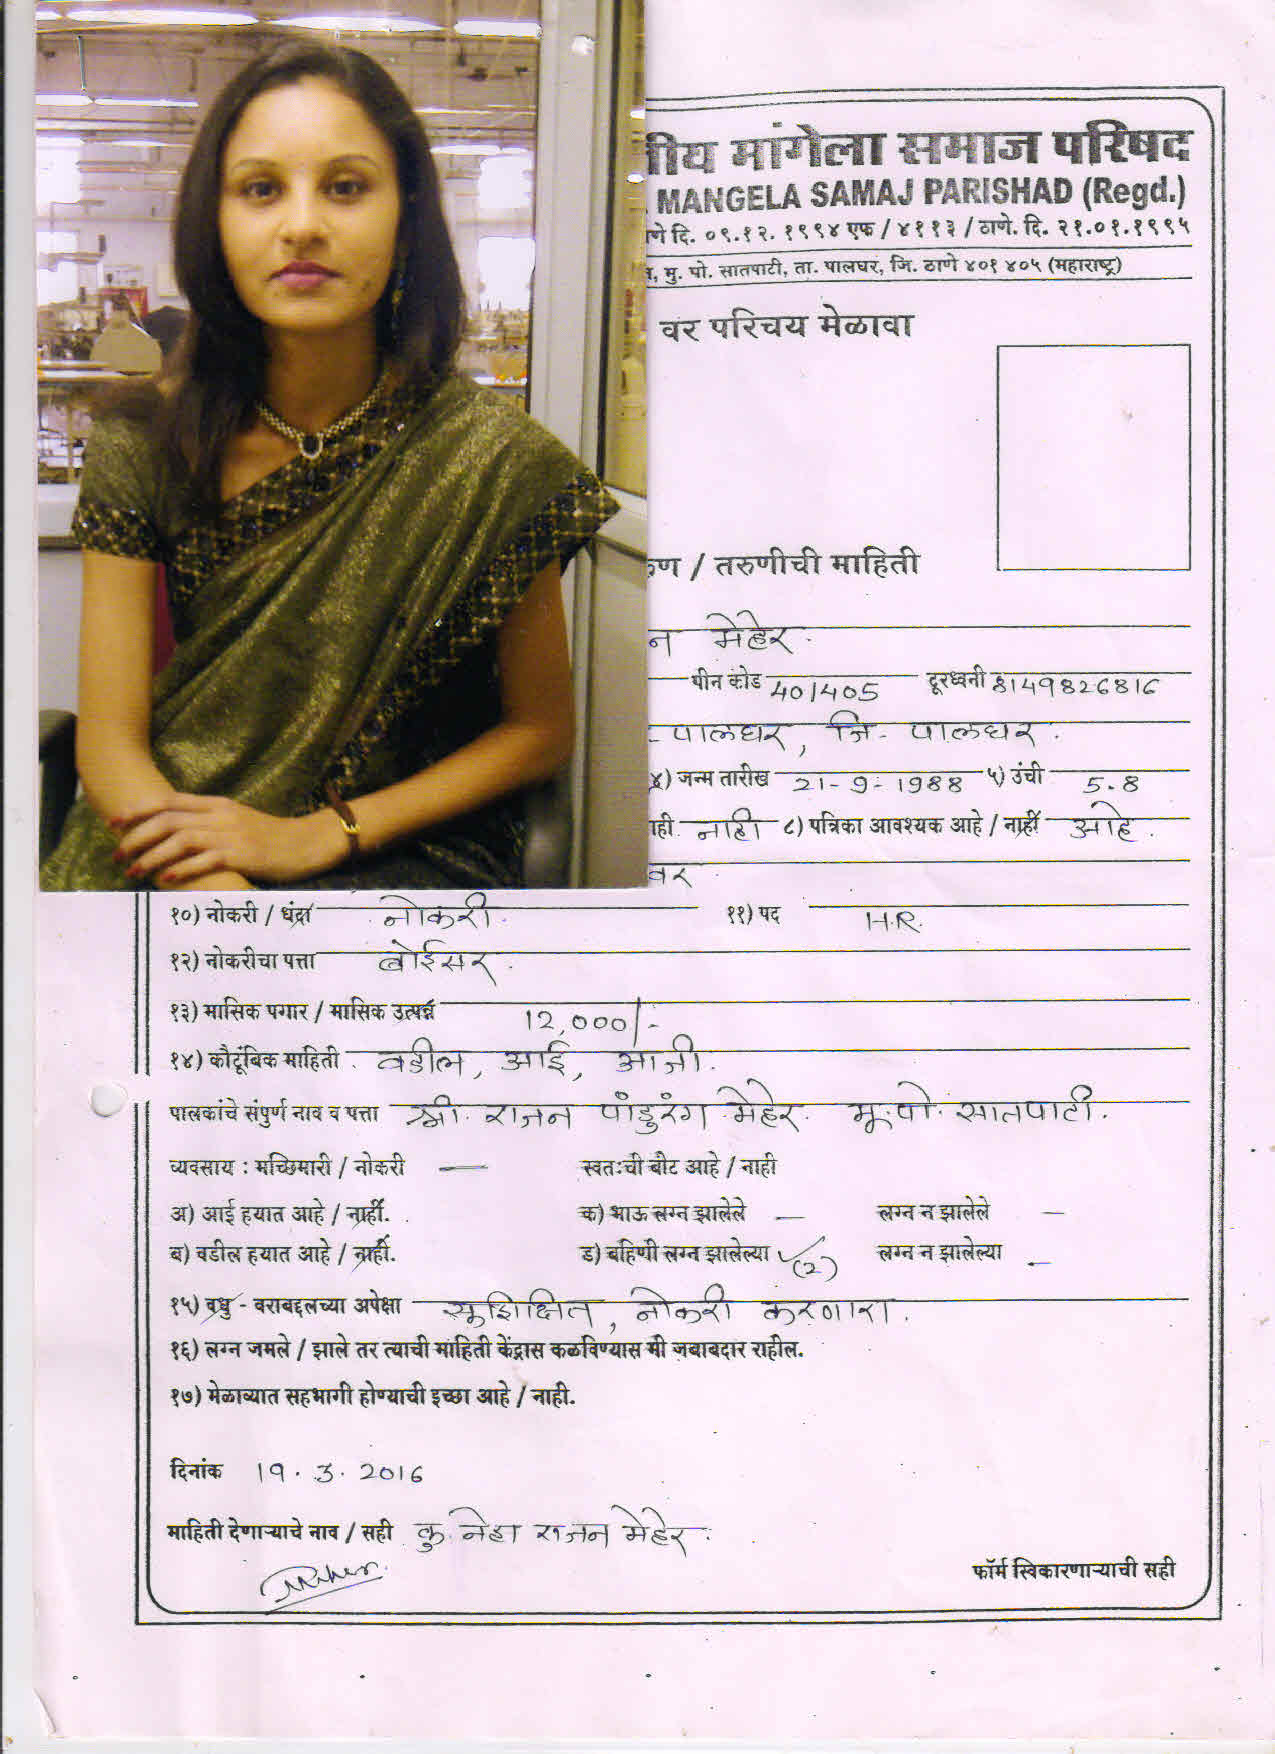 ीय मांगेला समाज परिषद
MANGELA SAMAJ PARISHAD (Regd.)
णे दि. ०९.१२. १९९४ एफ / ४११३ / ठाणे. दि. २१.०१.१९९५
मु. पो. सातपाटी, ता. पालघर, जि. ठाणे ४०१ ४०५ (महाराष्ट्र)
वर परिचय मेळावा
रुण / तरुणीची माहिती
न मेहेर.
पीन कोड 401405 दूरध्वनी 8149826816
पालघर, जि- पालघर.
४) जन्म तारीख 21-9-1988 ५) उंची 5.8
ाही नाही ८) पत्रिका आवश्यक आहे / नाही आहे.
वर
१०) नोकरी / धंद्रा नोकरी. ११) पद H.R.
१२) नोकरीचा पत्ता बोईसर.
१३) मासिक पगार / मासिक उत्पन्न 12,000/-
१४) कौटूंबिक माहिती. वडील, आई, आजी.
पालकांचे संपुर्ण नाव व पत्ता श्री. राजन पांडुरंग मेहेर. मू.पो. सातपाटी.
व्यवसाय : मच्छिमारी / नोकरी — स्वतःची बीट आहे / नाही
अ) आई हयात आहे / नाही. क) भाऊ लग्न झालेले — लग्न न झालेले —
ब) वडील हयात आहे / नाही. ड) बहिणी लग्न झालेल्या ✓(2) लग्न न झालेल्या —
१५) वधु - वराबद्दलच्या अपेक्षा सूशिक्षित, नोकरी करणारा.
१६) लग्न जमले / झाले तर त्याची माहिती केंद्रास कळविण्यास मी जबाबदार राहील.
१७) मेळाव्यात सहभागी होण्याची इच्छा आहे / नाही.
दिनांक 19.3.2016
माहिती देणाऱ्याचे नाव / सही कु. नेहा राजन मेहेर.
फॉर्म स्विकारणाऱ्याची सही